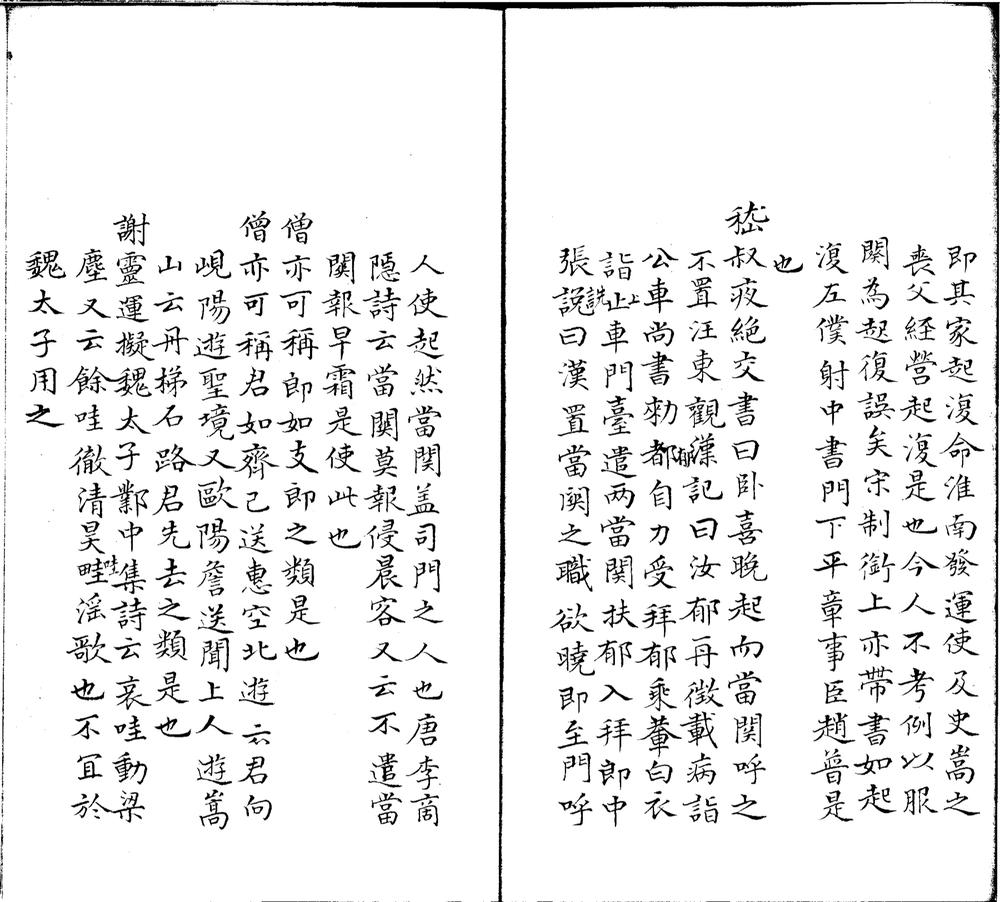 即其家起復命淮南發運使及史嵩之
喪父経營起復是也今人不考例以服
関為起復誤矣宋制銜上亦帶書如起
復左僕射中書門下平章事臣趙普是
也
嵇叔夜絶交書曰卧喜晚起而當関呼之
不置汪東觀漢記曰汝郁再徵載病詣
公車尚書勑都郁自力受拜郁乘輦白衣
詣止上車門臺遣两當関扶郁入拜郎中
張説詵曰漢置當関之職欲曉即至門呼
人使起然當関盖司門之人也唐李商
隱詩云當関莫報侵晨客又云不遣當
関報早霜是使此也
僧亦可稱郎如支郎之類是也
僧亦可稱君如齊己送惠空北遊云君向
峴陽遊聖境又歐陽詹送聞上人遊嵩
山云丹梯石路君先去之類是也
謝靈運擬魏太子鄴中集詩云哀哇動梁
塵又云餘哇徹清昊畦哇淫歌也不宜於
魏太子用之